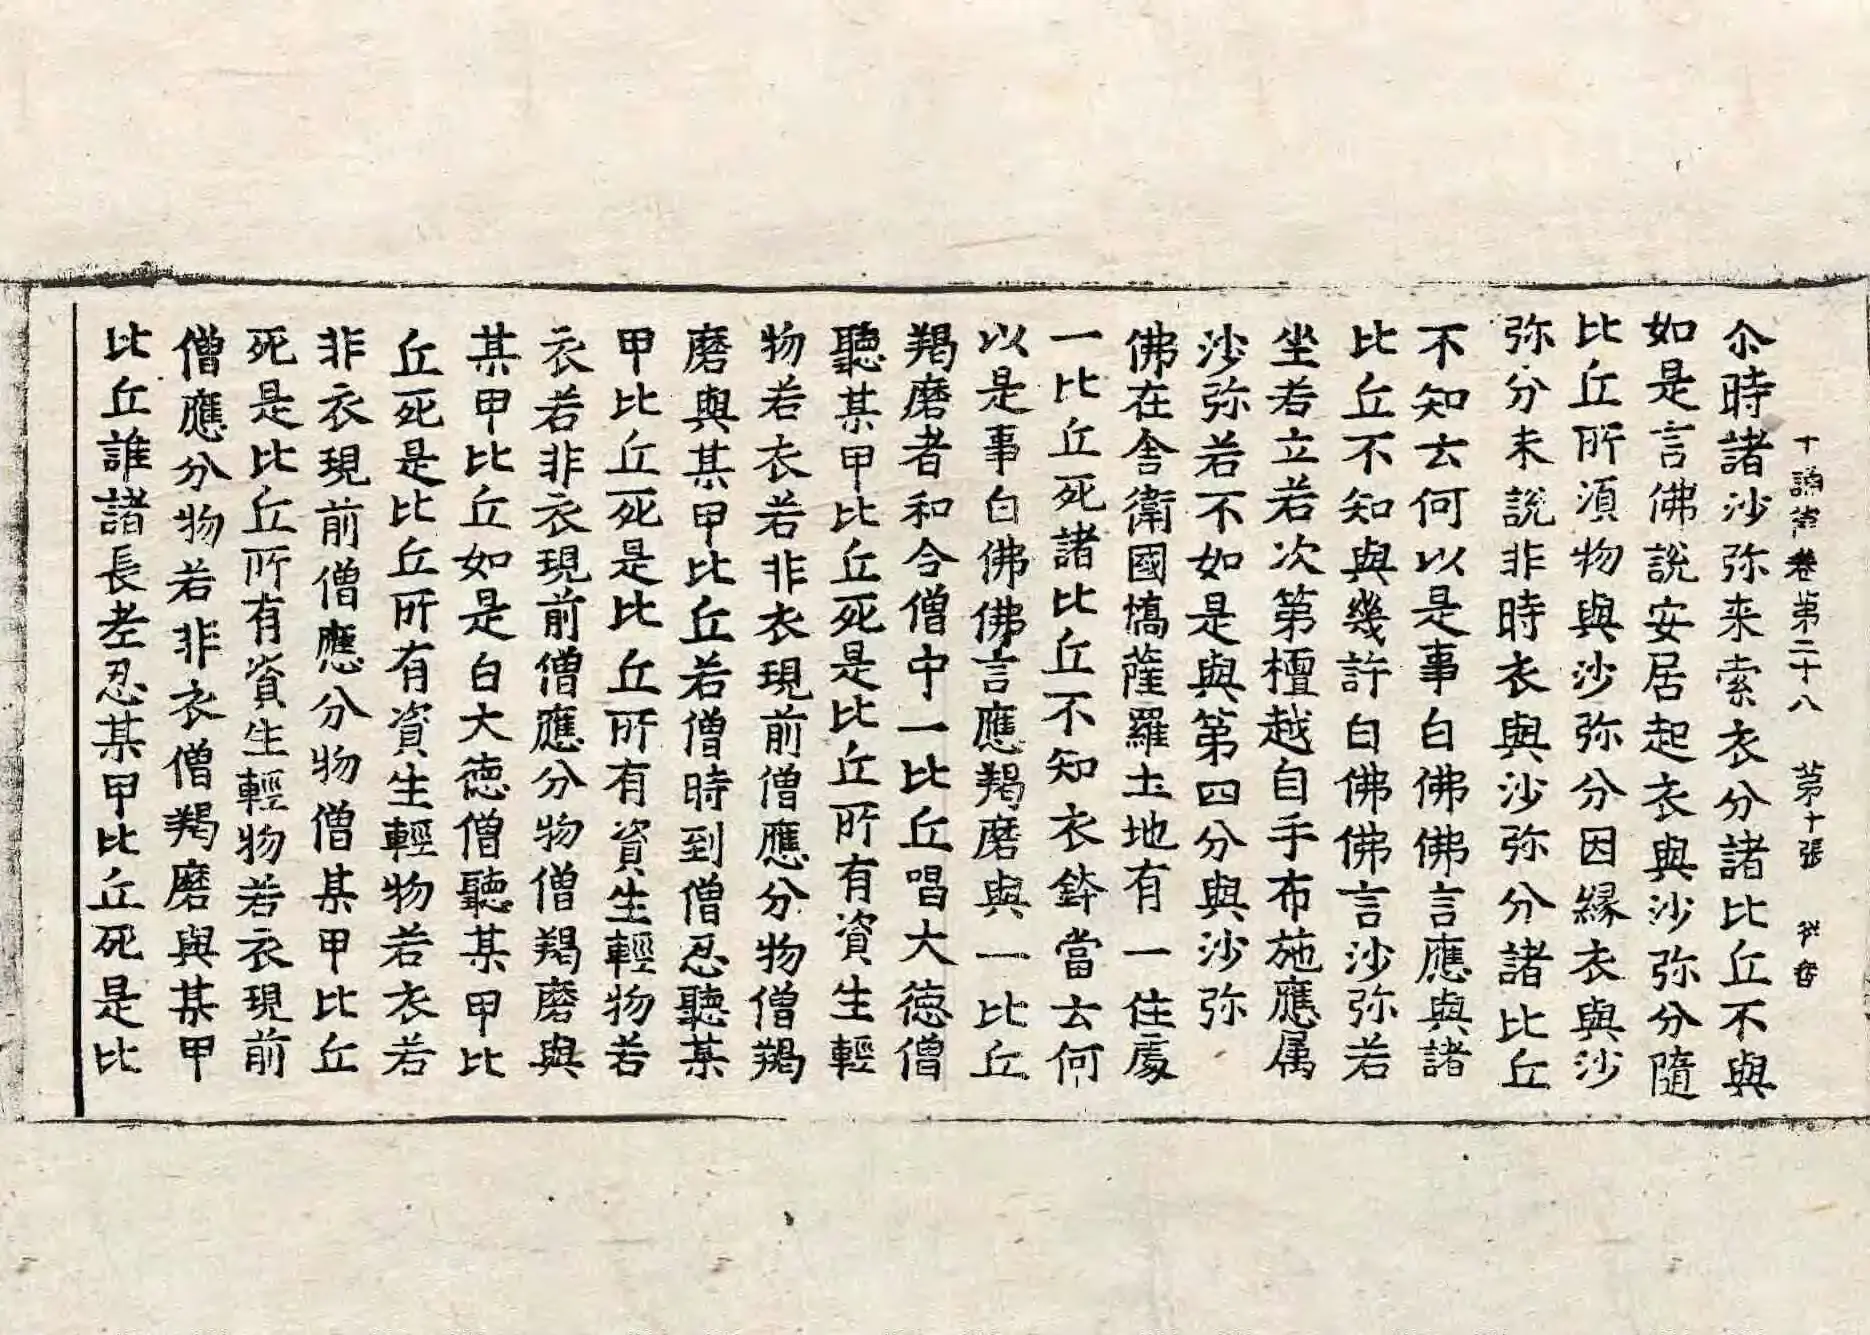 十誦律卷第二十八　第十張
尒時諸沙弥来索衣分諸比丘不與
如是言佛說安居起衣與沙弥分隨
比丘所湏物與沙弥分因縁衣與沙
弥分未說非時衣與沙弥分諸比丘
不知去何以是事白佛佛言應與諸
比丘不知與幾許白佛佛言沙弥若
坐若立若次第檀越自手布施應属
沙弥若不如是與第四分與沙弥
佛在舍衛國憍薩羅土地有一住處
一比丘死諸比丘不知衣鉢當去何
以是事白佛佛言應羯磨與一比丘
羯磨者和合僧中一比丘唱大德僧
聽某甲比丘死是比丘所有資生輕
物若衣若非衣現前僧應分物僧羯
磨與某甲比丘若僧時到僧忍聽某
甲比丘死是比丘所有資生輕物若
衣若非衣現前僧應分物僧羯磨與
某甲比丘如是白大德僧聽某甲比
丘死是比丘所有資生輕物若衣若
非衣現前僧應分物僧某甲比丘
死是比丘所有資生輕物若衣現前
僧應分物若非衣僧羯磨與某甲
比丘誰諸長老忍某甲比丘死是比